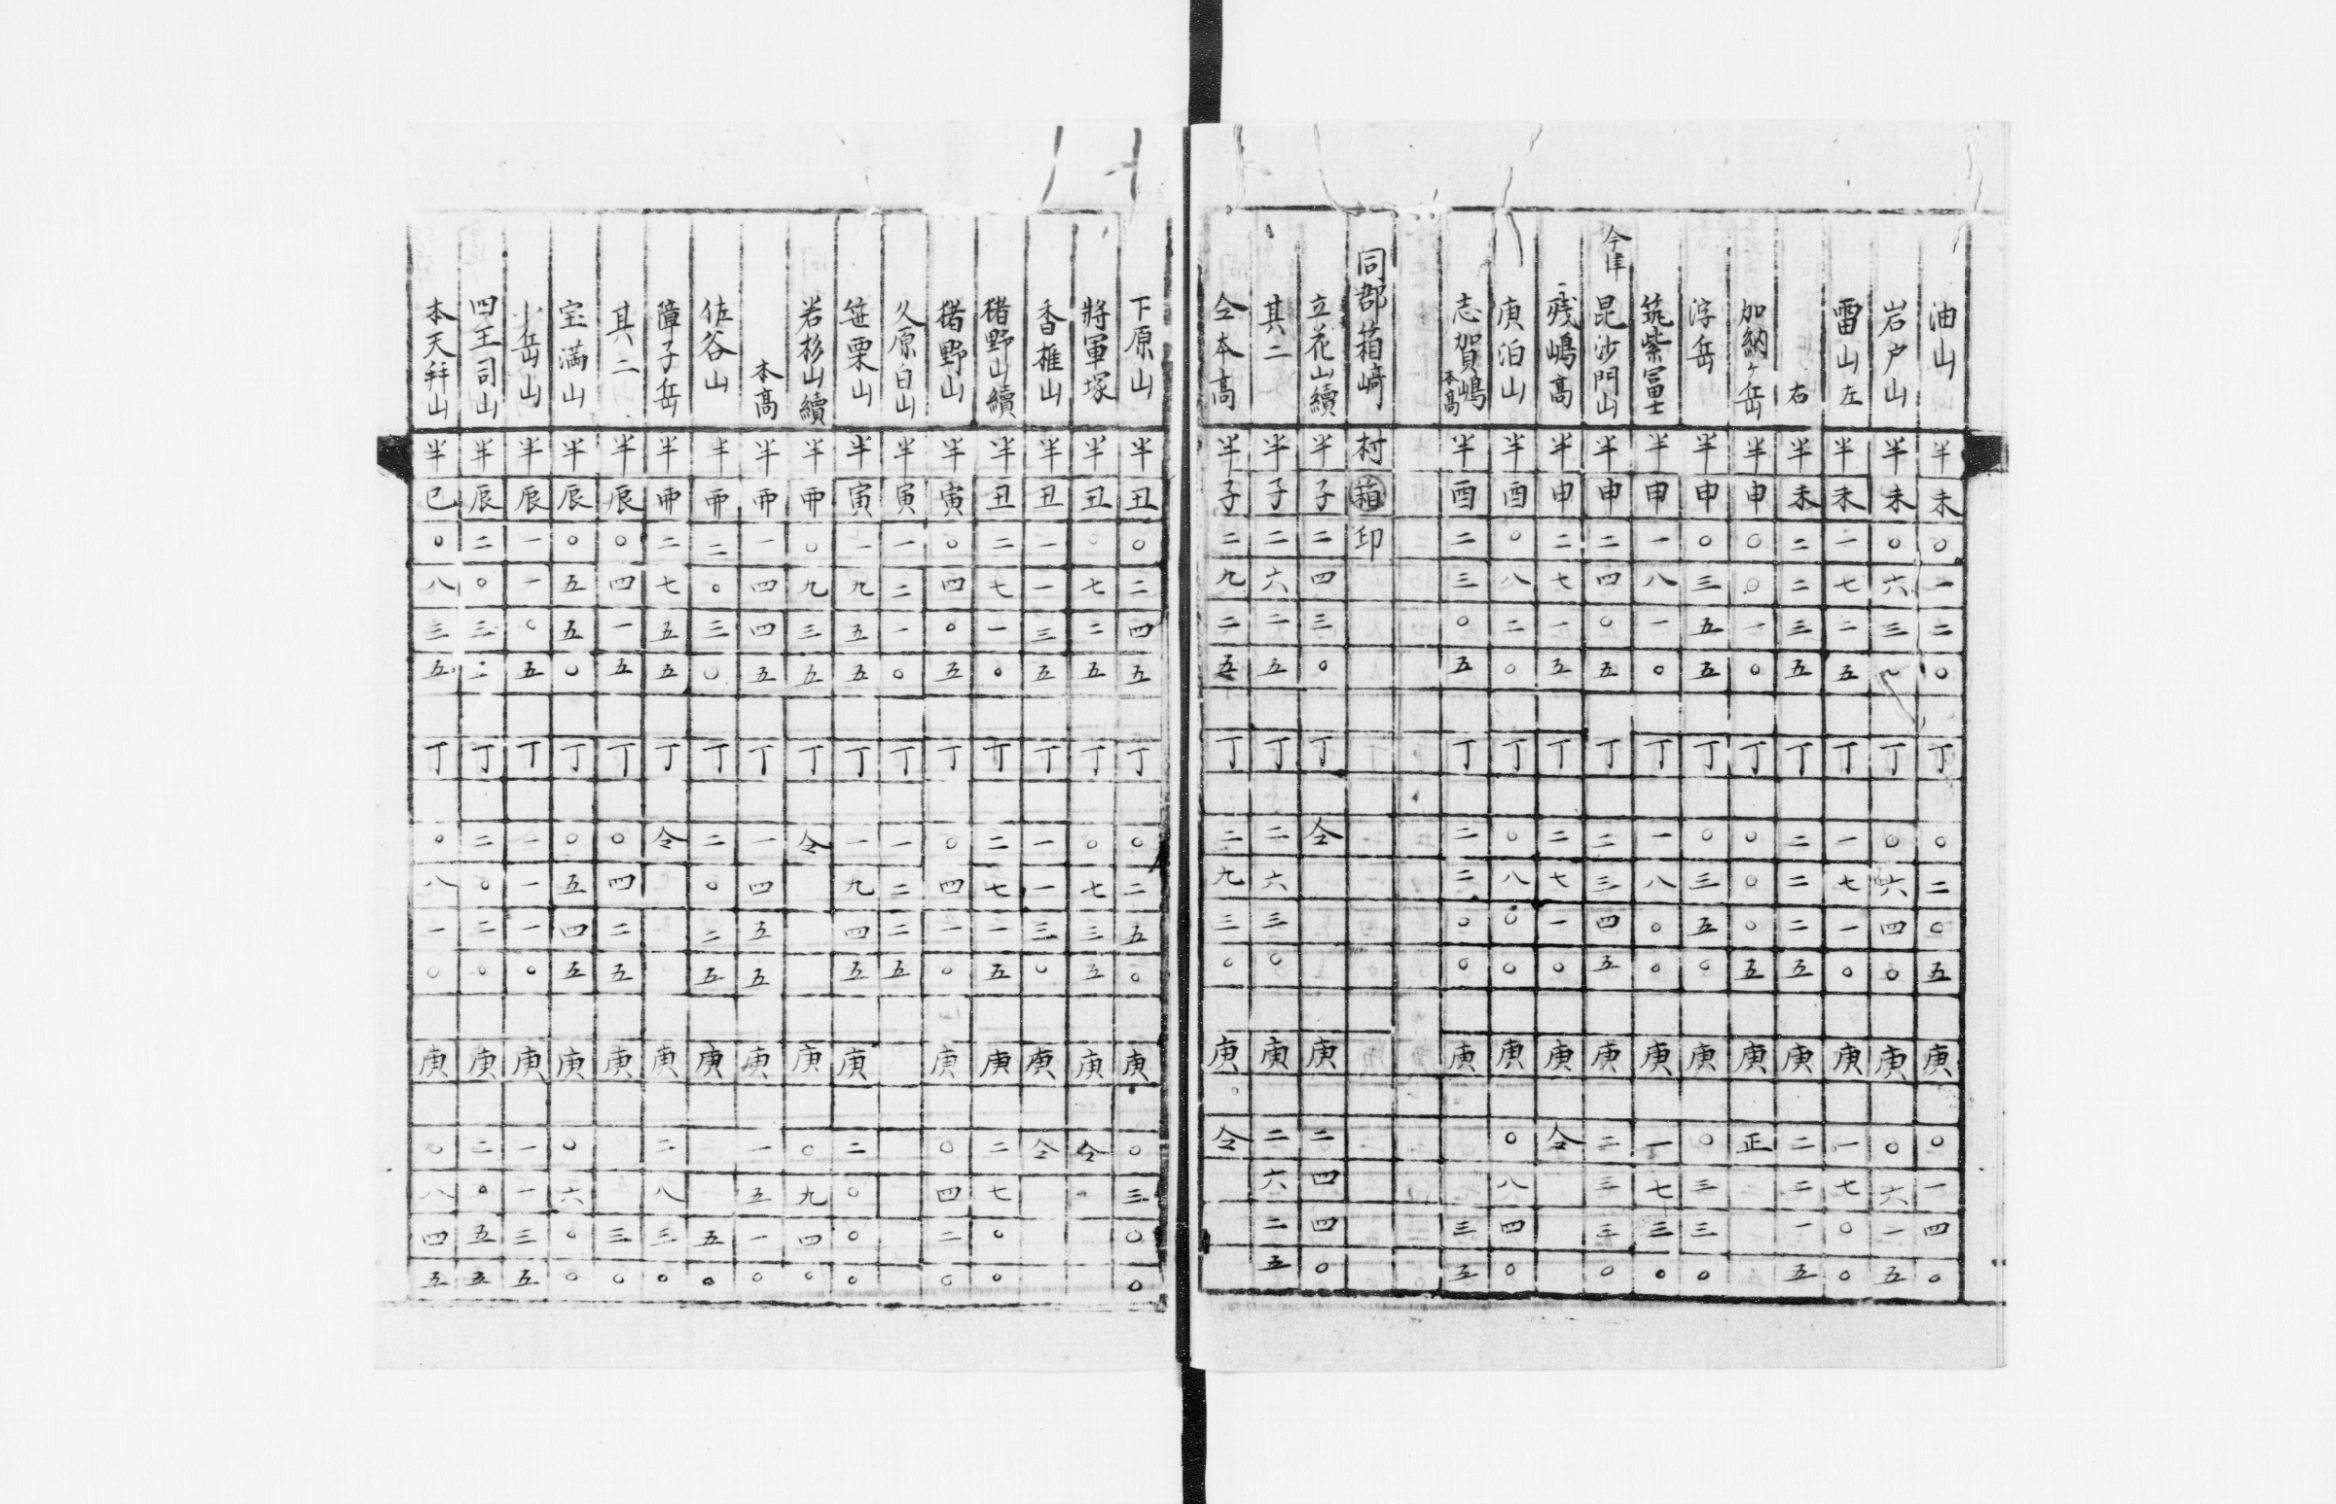 油山 半 未 〇 一 二 〇 丁 〇 二 〇 五 庚 〇 一 四 〇
岩戸山 半 未 〇 六 三 〇 丁 〇 六 四 〇 庚 〇 六 一 五
雷山左 半 未 一 七 二 五 丁 一 七 一 〇 庚 一 七 〇 〇
右 半 未 二 二 三 五 丁 二 二 二 五 庚 二 二 一 五
加納ヶ岳 半 申 〇 〇 一 〇 丁 〇 〇 〇 五 庚 正
浮岳 半 申 〇 三 五 五 丁 〇 三 五 〇 庚 〇 三 三 〇
筑紫冨士 半 申 一 八 一 〇 丁 一 八 〇 〇 庚 一 七 三 〇
今津 昆沙門山 半 申 二 四 〇 五 丁 二 三 四 五 庚 二 三 三 〇
残嶋高 半 申 二 七 一 五 丁 二 七 一 〇 庚 仝
庚泊山 半 酉 〇 八 二 〇 丁 〇 八 〇 〇 庚 〇 八 四 〇
志賀嶋本高 半 酉 二 三 〇 五 丁 二 二 〇 〇 庚 三 五
同郡箱﨑村 箱 印
立花山續 半 子 二 四 三 〇 丁 仝 庚 二 四 四 〇
其二 半 子 二 六 二 五 丁 二 六 三 〇 庚 二 六 二 五
仝本高 半 子 二 九 二 五 丁 二 九 三 〇 庚 仝
下原山 半 丑 〇 二 四 五 丁 〇 二 五 〇 庚 〇 三 〇 〇
將軍塚 半 丑 〇 七 二 五 丁 〇 七 三 五 庚 仝
香椎山 半 丑 一 一 三 五 丁 一 一 三 〇 庚 仝
猪野山續 半 丑 二 七 一 〇 丁 二 七 一 五 庚 二 七 〇 〇
猪野山 半 寅 〇 四 〇 五 丁 〇 四 一 〇 庚 〇 四 二 〇
久原白山 半 寅 一 二 一 〇 丁 一 二 二 五
笹栗山 半 寅 一 九 五 五 丁 一 九 四 五 庚 二 〇 〇 〇
岩杉山續 半 戼 〇 九 三 五 丁 仝 庚 〇 九 四 〇
本高 半 戼 一 四 四 五 丁 一 四 五 五 庚 一 五 一 〇
佐谷山 半 戼 二 〇 三 〇 丁 二 〇 二 五 庚 五 〇
障子岳 半 戼 二 七 五 五 丁 仝 庚 二 八 三 〇
其二 半 辰 〇 四 一 五 丁 〇 四 二 五 庚 三 〇
宝満山 半 辰 〇 五 五 〇 丁 〇 五 四 五 庚 〇 六 〇 〇
岳山 半 辰 一 一 〇 五 丁 一 一 一 〇 庚 一 一 三 五
四王司山 半 辰 二 〇 三 丁 二 〇 二 〇 庚 二 〇 五 五
本天拜山 半 巳 〇 八 三 五 丁 〇 八 一 〇 庚 〇 八 四 五